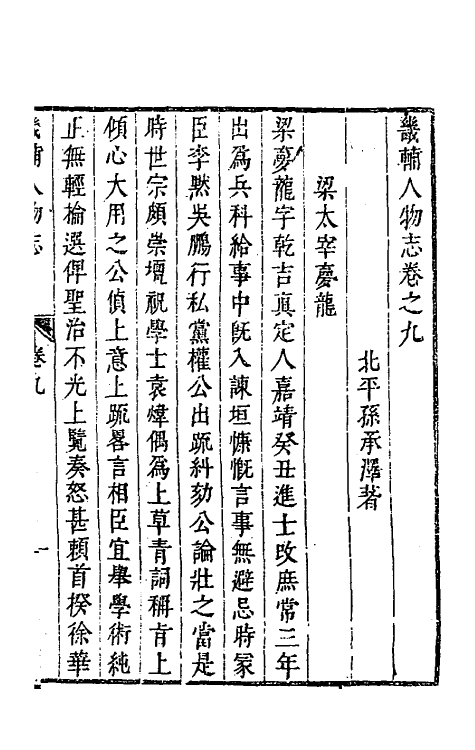 畿輔人物志卷之九
北平孫承澤著
梁太宰夢龍
梁夢龍字乾吉真定人嘉靖癸丑進士攺庶常三年
出爲兵科給事中旣入諫垣慷慨言事無避忌時冢
臣李默吳鵬行私黨權公出䟽糾劾公論壯之當是
時世宗頗崇壇祝學士袁煒偶爲上草青詞稱肯上
傾心大用之公偵上意上䟽畧言相臣宜舉學術純
正無輕掄選俾聖治不光上覽奏怒甚賴首揆徐華
畿輔人物志
卷九
一